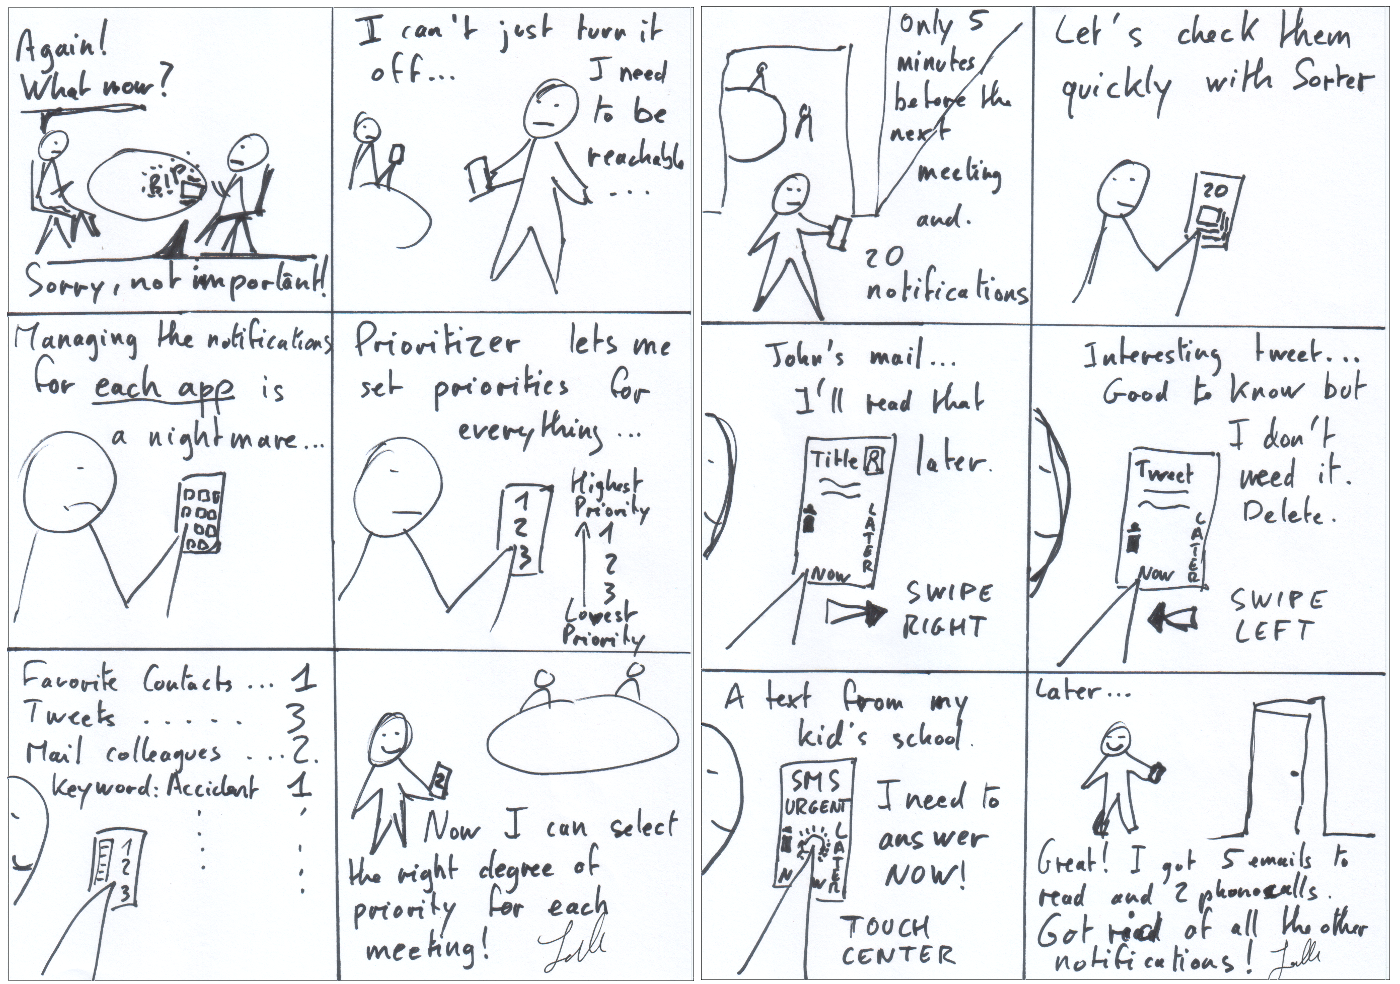 Again!
What now?
R!P
Sorry, not important!
I can't just turn it
off...
I need
to be
reachable
...
Managing the notifications
for each app is
a nightmare...
Prioritizer lets me
set priorities for
everything...
1
2
3
Highest
Priority
1
2
3
Lowest
Priority
Favorite Contacts ... 1
Tweets ..... 3
Mail colleagues ... 2.
Keyword: Accident 1
1
2
3
2
Now I can select
the right degree of
priority for each
meeting!
Only 5
minutes
before the
next
meeting
and.
20
notifications
Let's check them
quickly with Sorter
20
John's mail...
I'll read that
later.
Title R
LATER
NOW
SWIPE
RIGHT
Interesting tweet...
Good to know but
I don't
need it.
Delete.
Tweet
LATER
NOW
SWIPE
LEFT
A text from my
kid's school.
SMS
URGENT
LATER
N W
I need to
answer
NOW!
TOUCH
CENTER
Later...
Great! I got 5 emails to
read and 2 phonecalls.
Got rid of all the other
notifications!